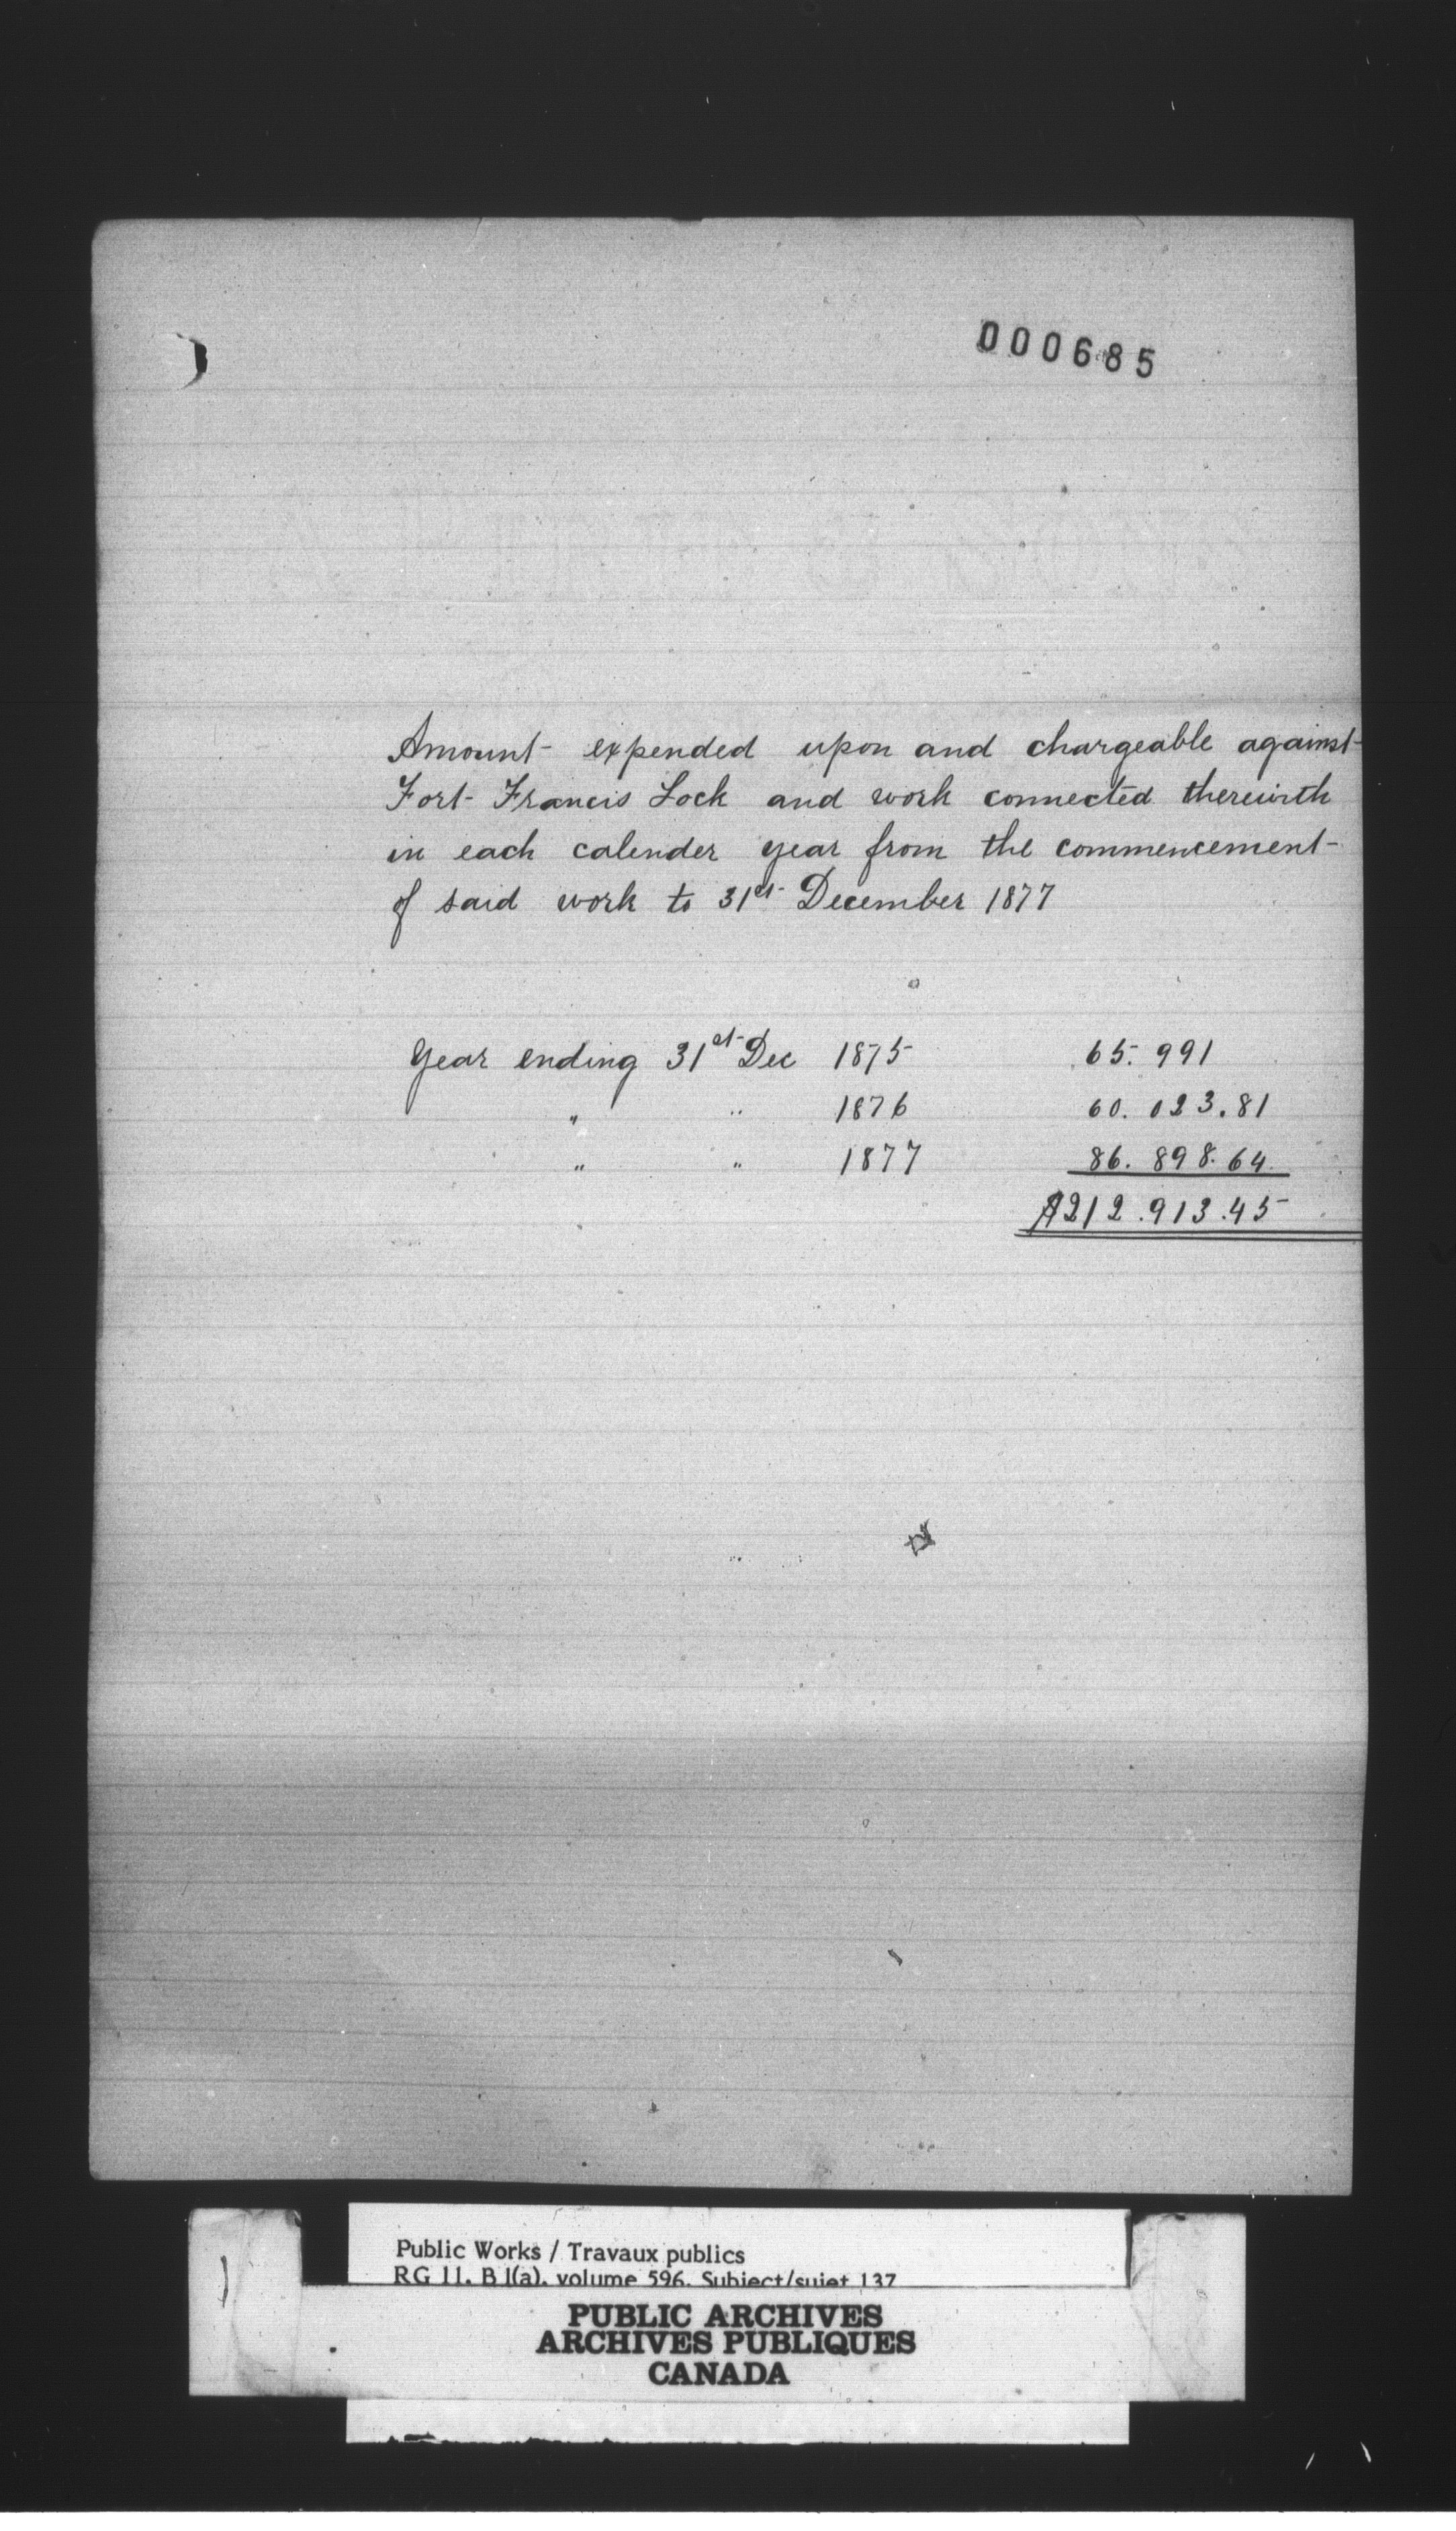 000685
Amount expended upon and chargeable against
Fort Francis Lock and work connected therewith
in each calender year from the commencement
of said work to 31st December 1877
Year ending 31st Dec 1875 65.991
" " 1876 60.023.81
" " 1877 86.898.64
$212.913.45
Public Works / Travaux publics
RG 11, B 1(a), volume 596, Subject/sujet 137
PUBLIC ARCHIVES
ARCHIVES PUBLIQUES
CANADA